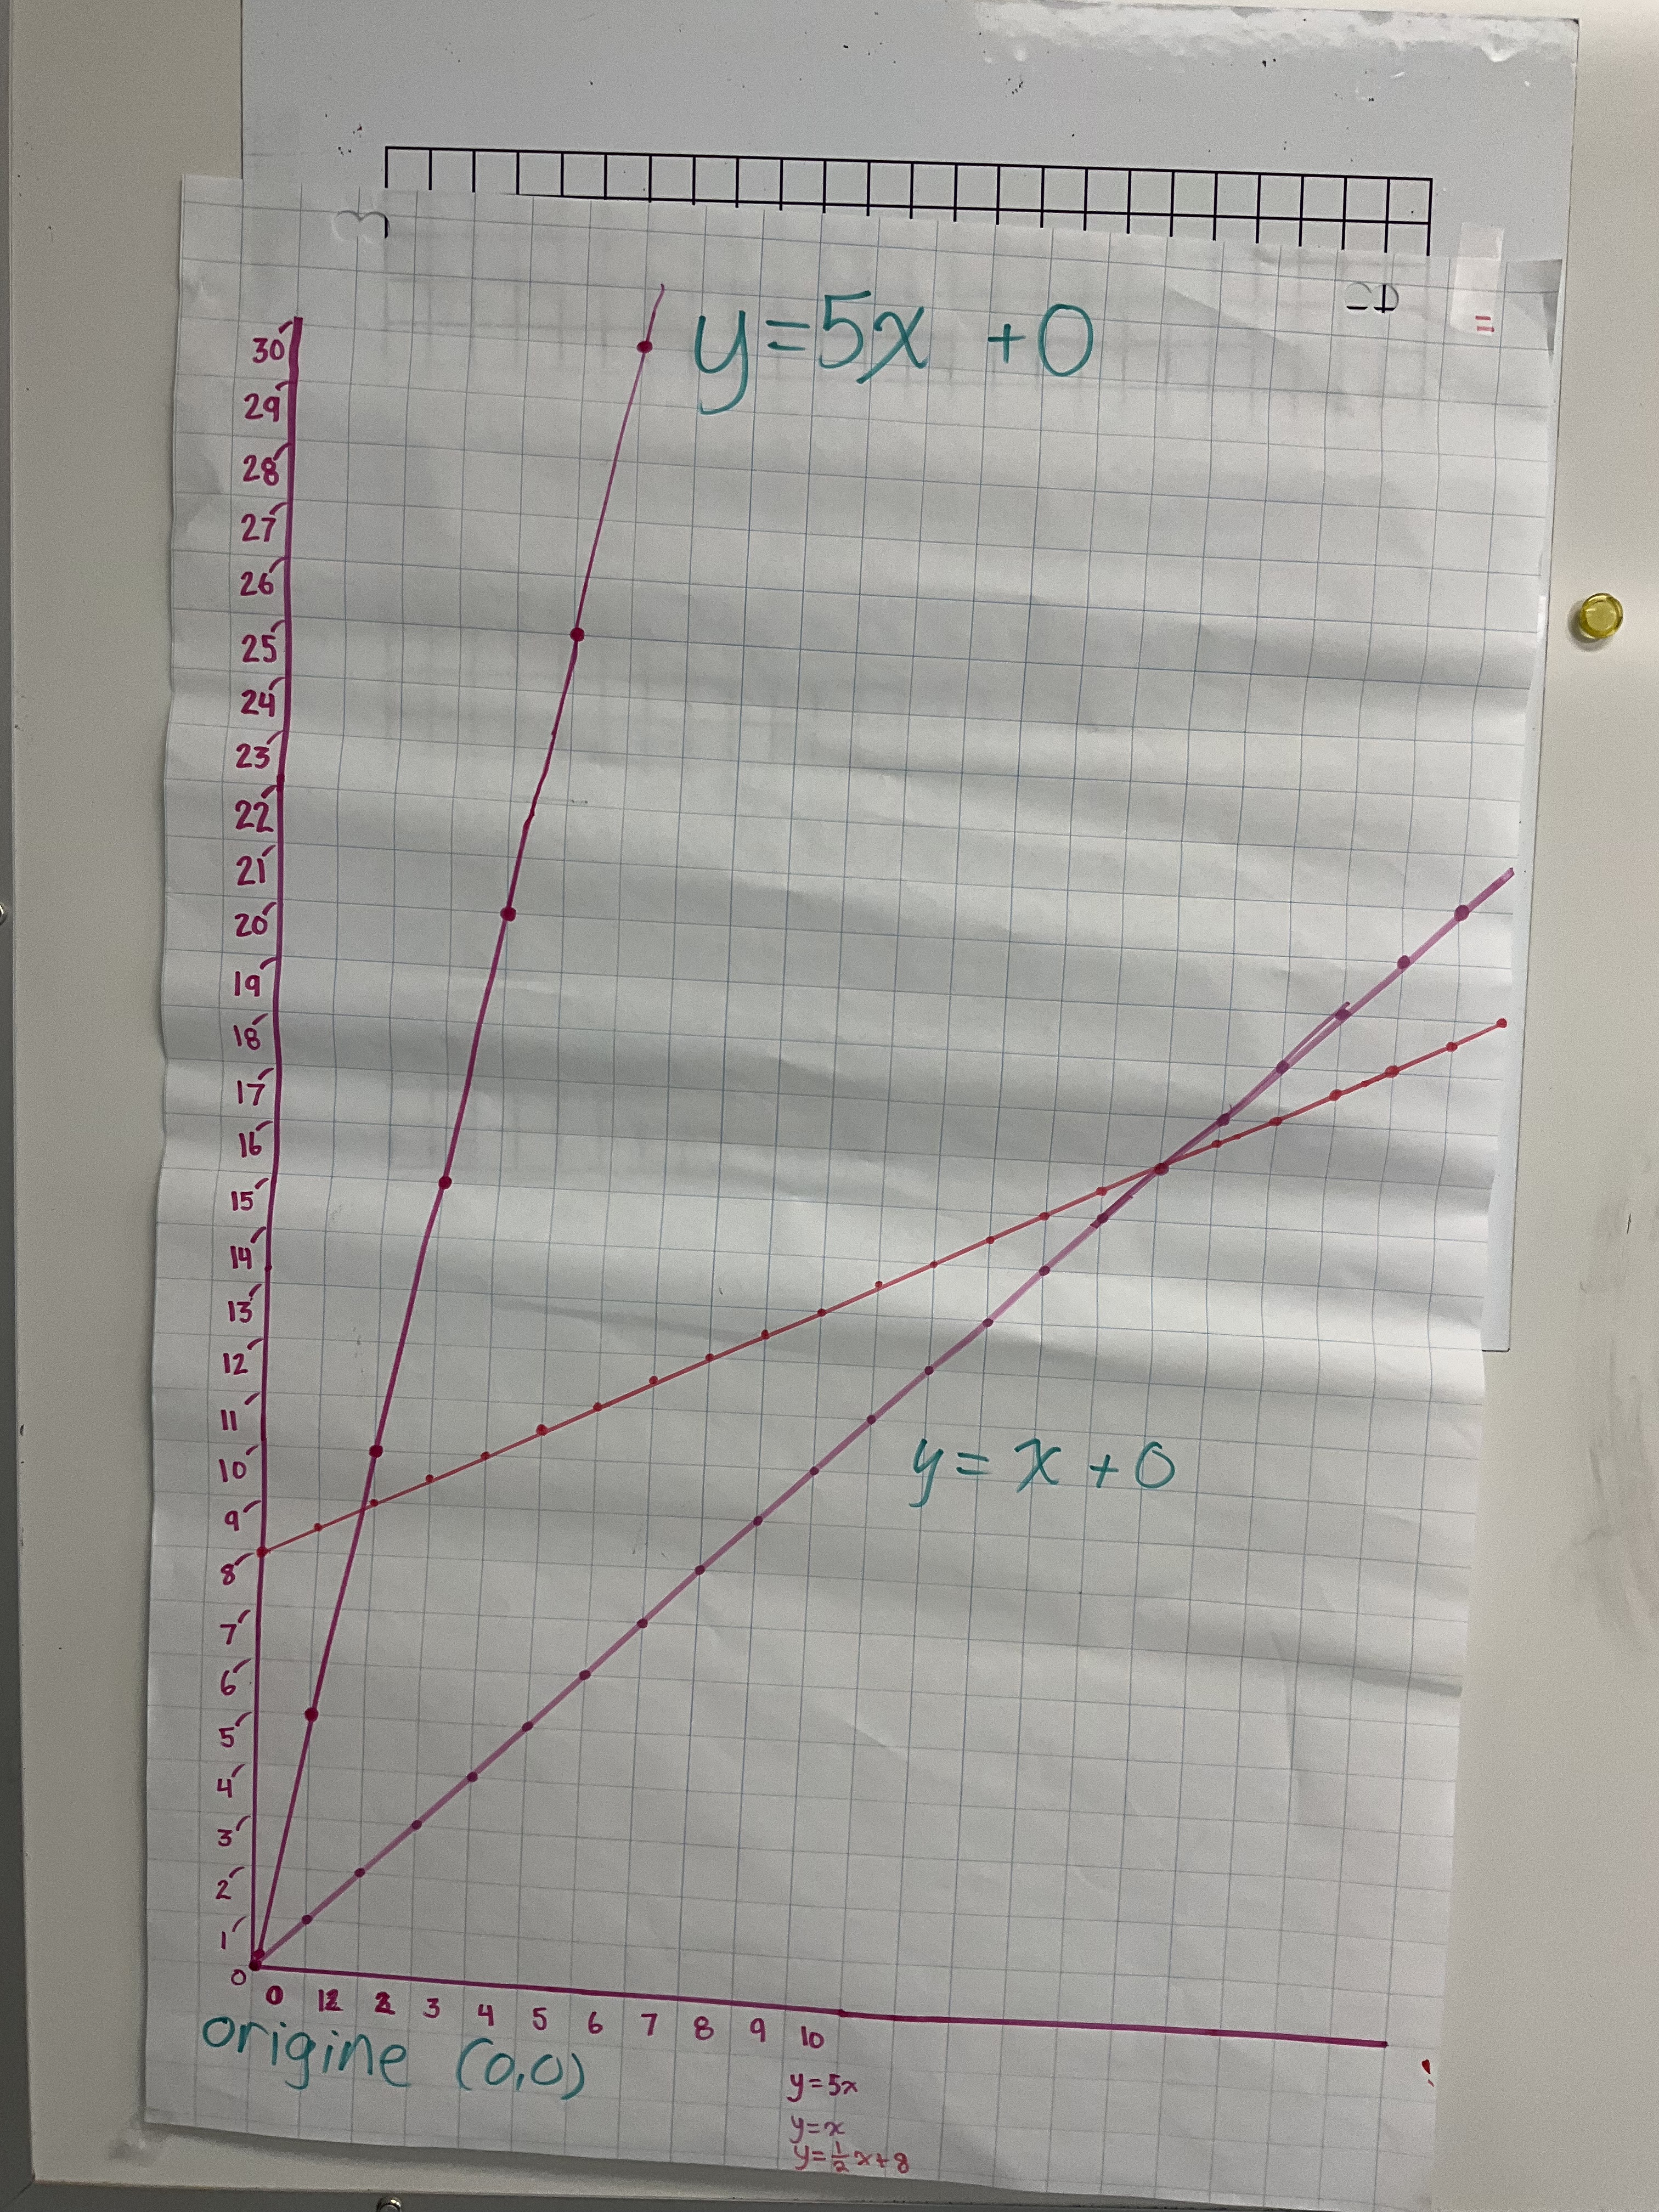 y=5x +0
30
29
28
27
26
25
24
23
22
21
20
19
18
17
16
15
14
13
12
11
10
9
8
7
6
5
4
3
2
1
0
y= x +0
0 12 2 3 4 5 6 7 8 9 10
origine (0,0)
y=5x
y=x
y=½x+8